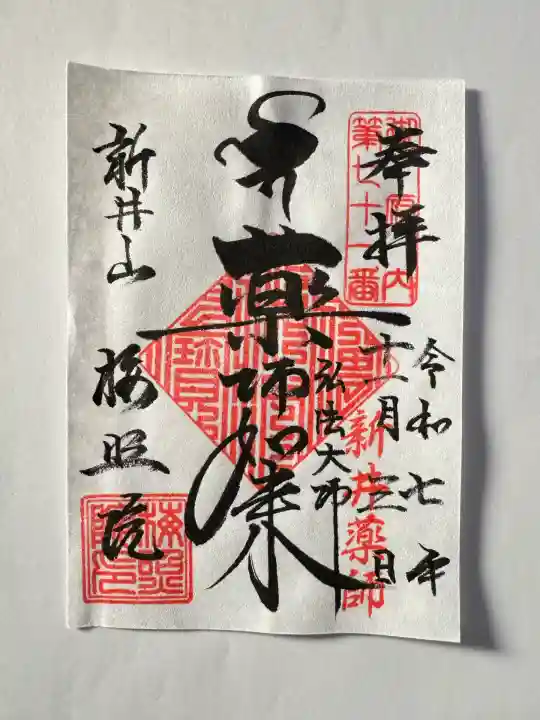 奉拝
御府内
第七十一番
令和七年
十二月三日
新井薬師
弘法大师
薬師如来
新井山
梅照院